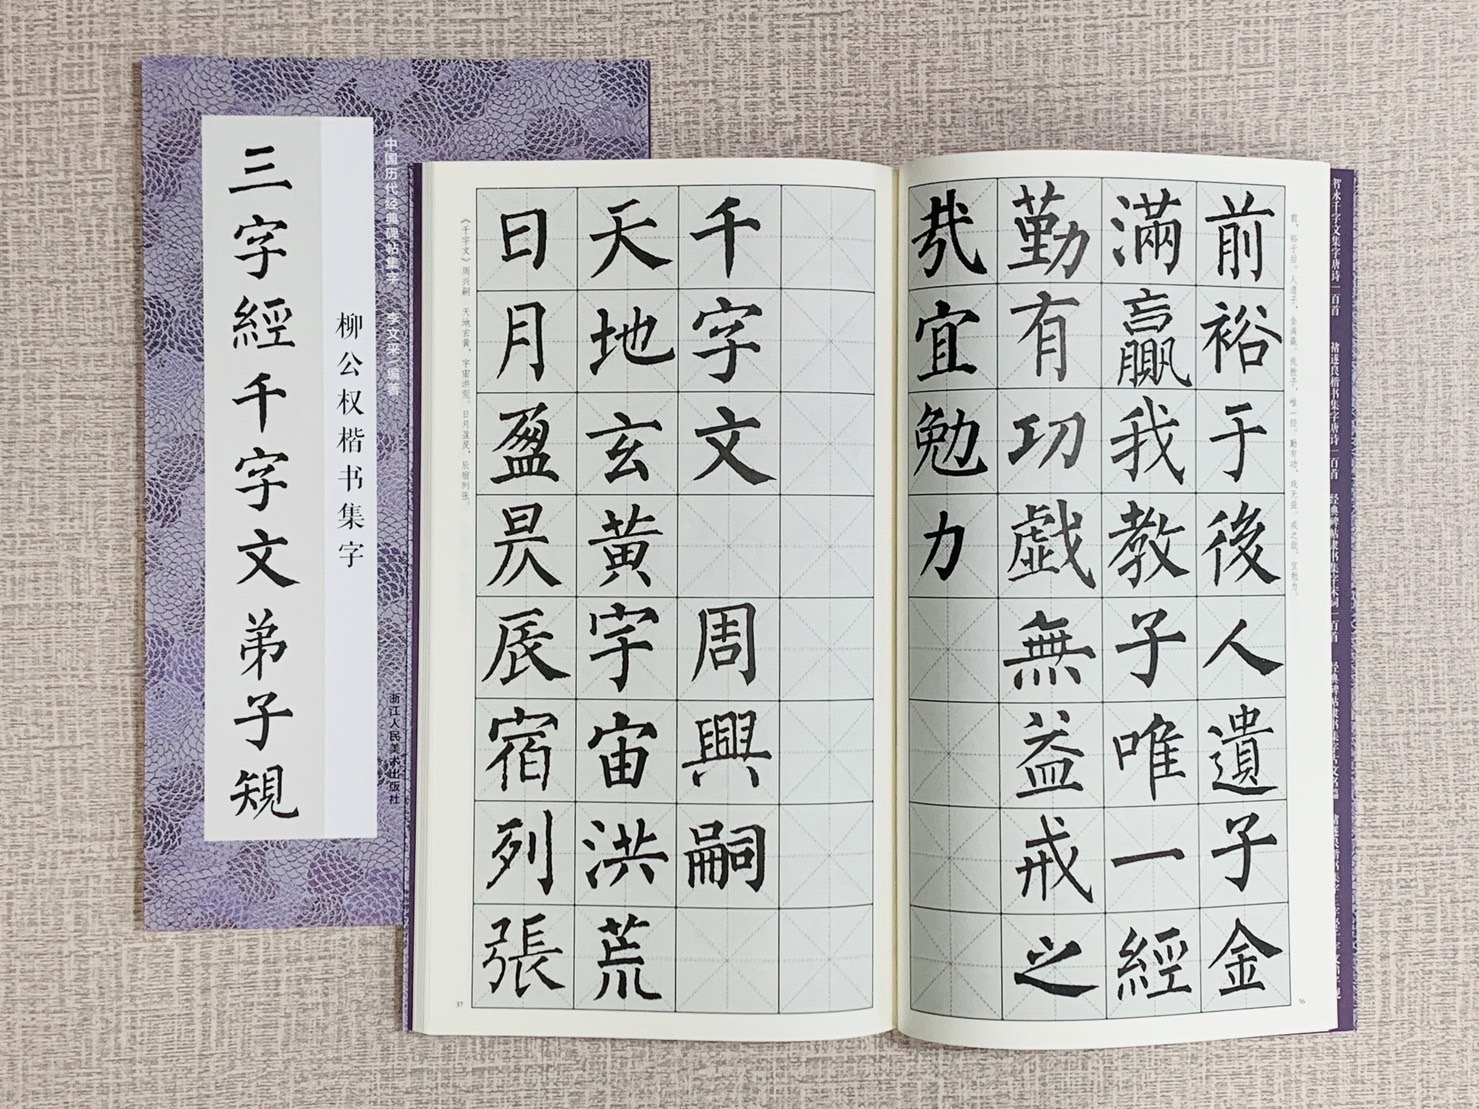 中国历代经典碑帖集字 李文采 编著
柳公权楷书集字
三字經千字文弟子規
浙江人民美术出版社
智永千字文集字唐诗一百首 褚遂良楷书集字唐诗一百首 经典碑帖隶书集字宋词一百首
前，裕于后。人遗子，金满赢。我教子，唯一经。勤有功，戏无益。戒之哉，宜勉力。
前裕于後人遺子金
滿贏我教子唯一經
勤有功戲無益戒之
哉宜勉力
36
千字文 周興嗣
天地玄黃宇宙洪荒
日月盈昃辰宿列張
《千字文》周兴嗣 天地玄黄，宇宙洪荒。日月盈昃，辰宿列张。
37